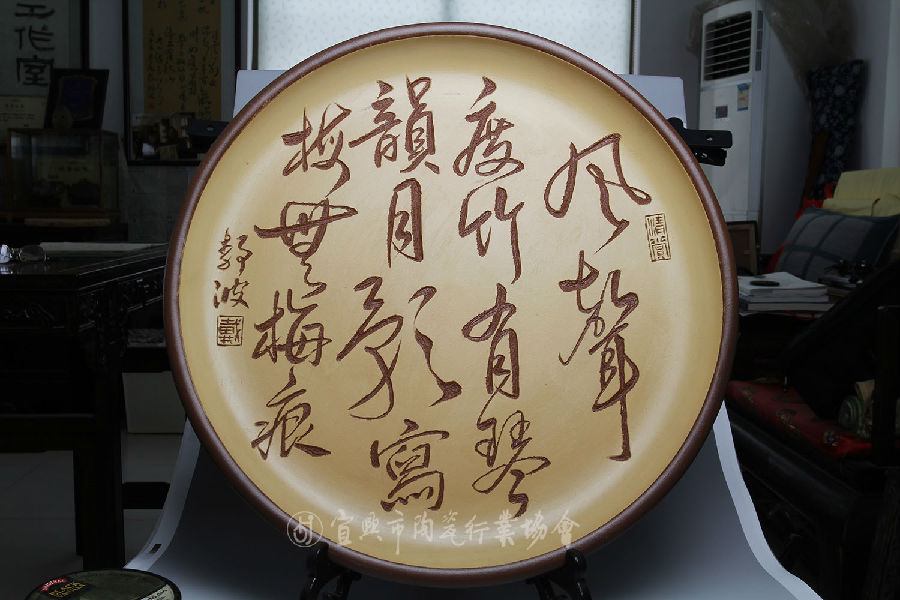 风聲
度竹有琴
韻月影寫
梅無梅痕
靜波
戴
清賞
工作室
宜興市陶瓷行業協會